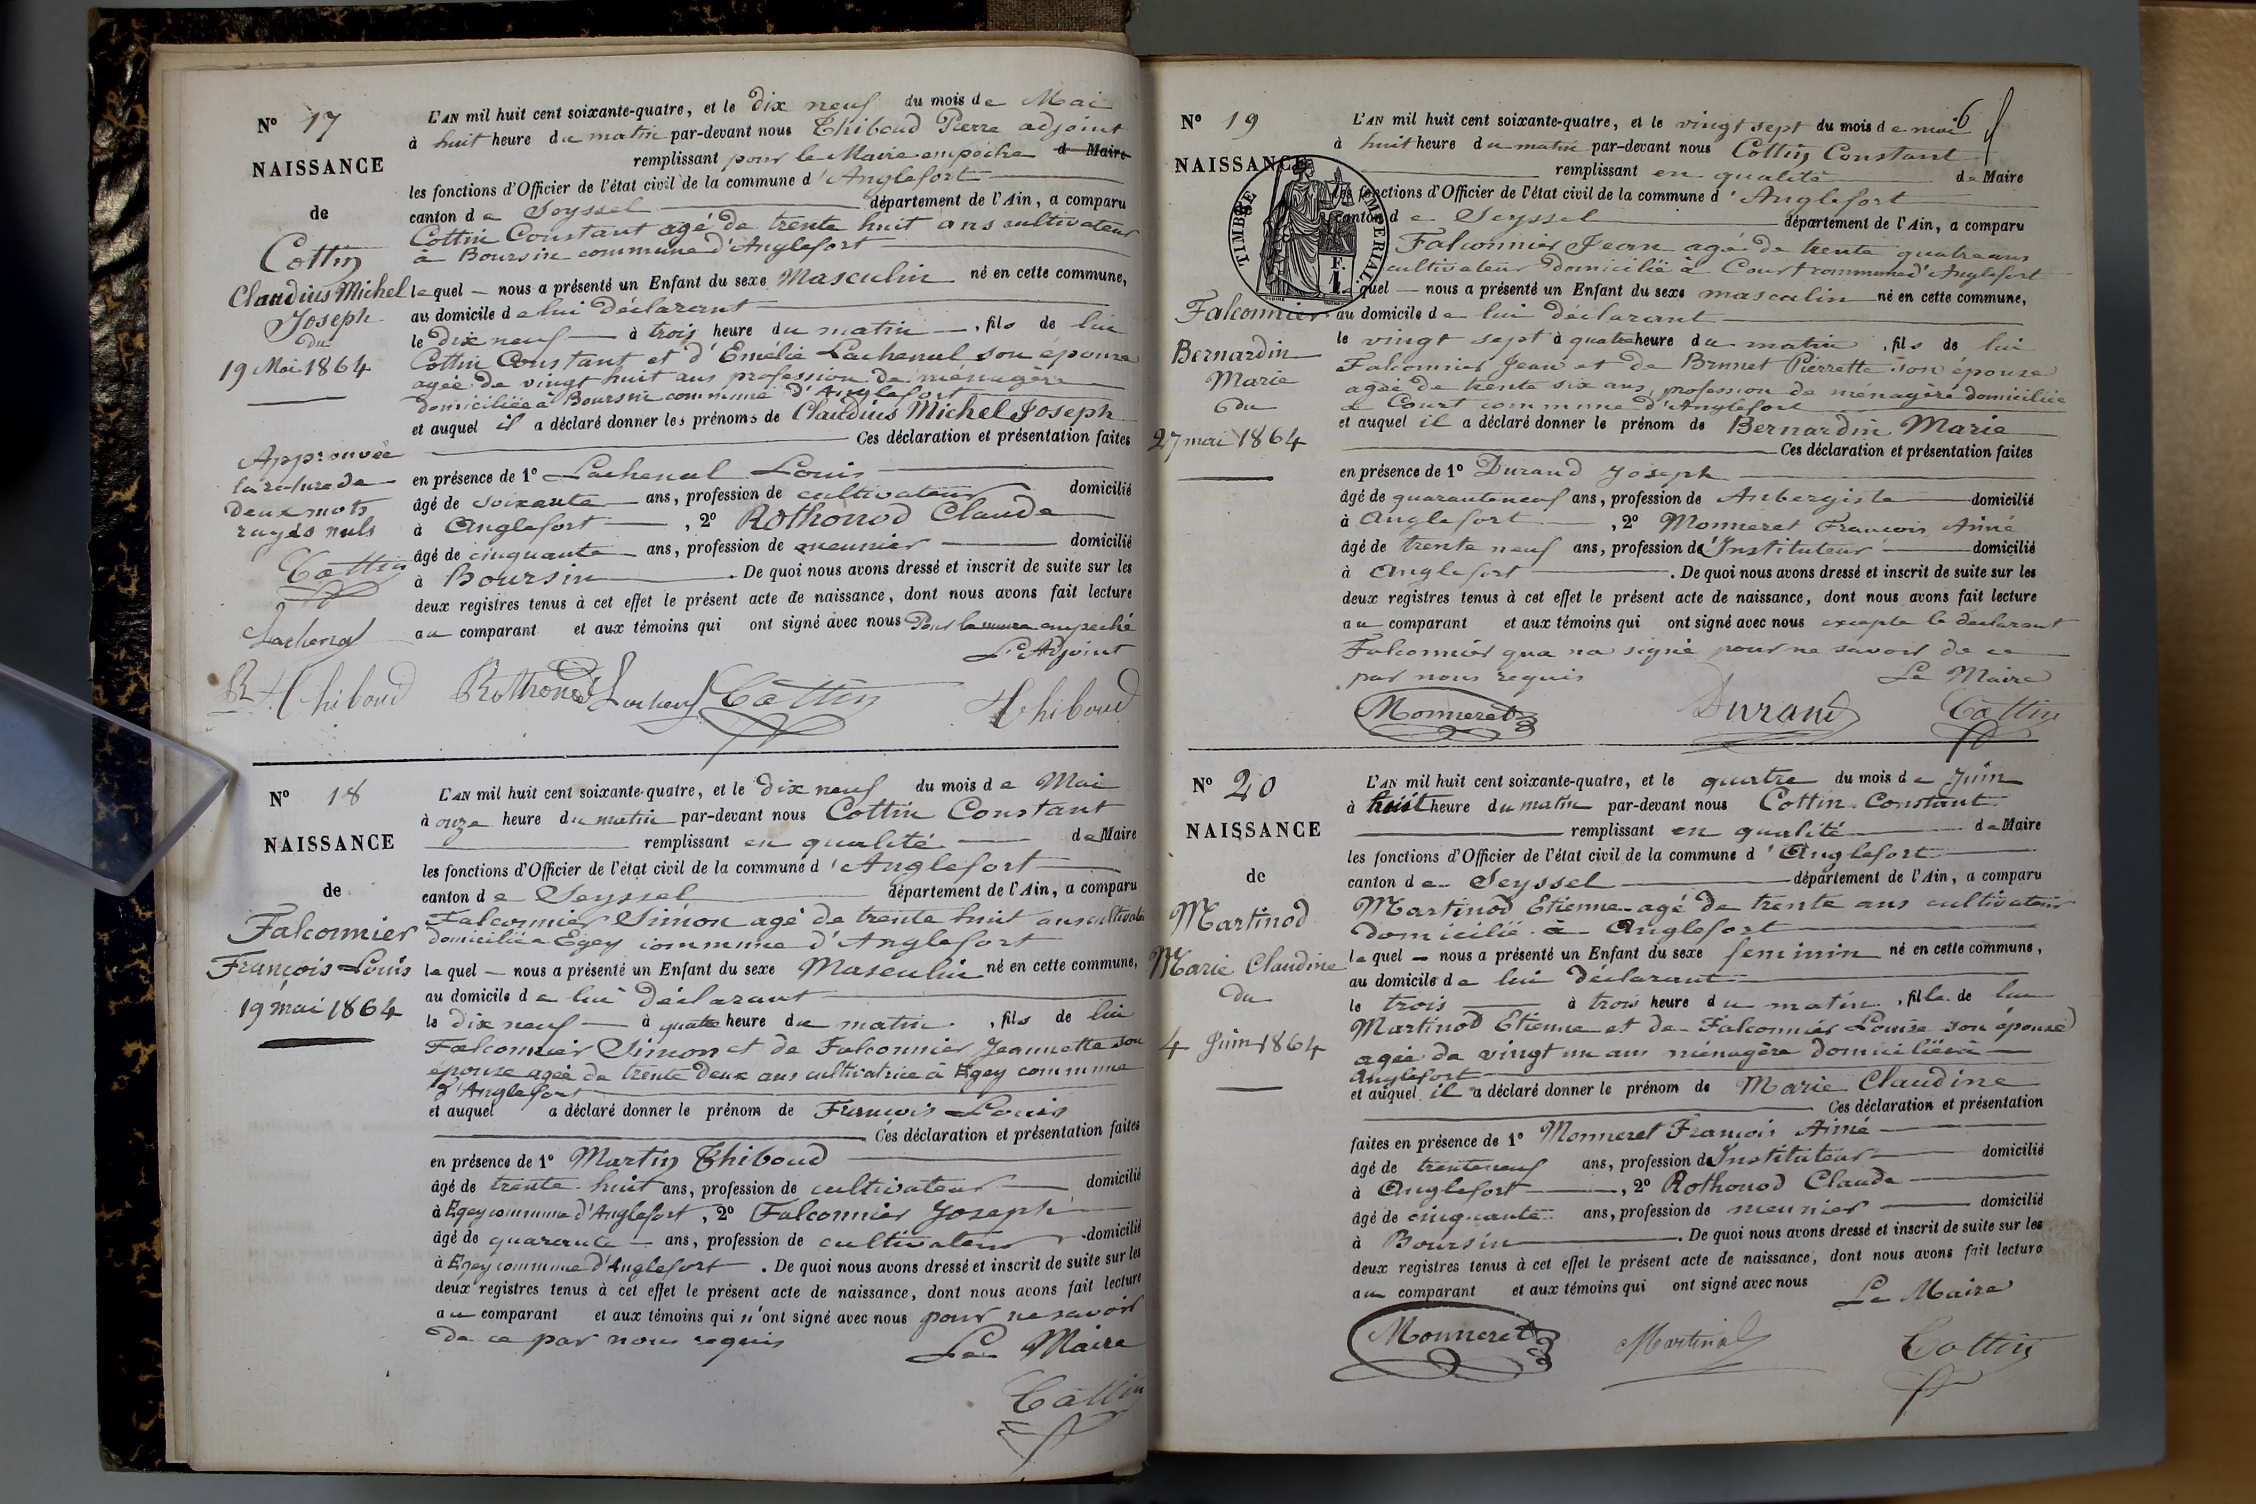 N° 17
NAISSANCE
de
Cottin
Claudius Michel
Joseph
du
19 Mai 1864
Approuvée
la rature de
deux mots
rayés nuls
Cottin
Lachenal
R Thiboud
L'AN mil huit cent soixante-quatre, et le dix neuf du mois de Mai
à huit heure du matin par-devant nous Thiboud Pierre adjoint
remplissant pour le Maire empêché d Maire
les fonctions d'Officier de l'état civil de la commune d'Anglefort
canton de Seyssel département de l'Ain, a comparu
Cottin Constant agé de trente huit ans cultivateur
à Boursin commune d'Anglefort
lequel nous a présenté un Enfant du sexe Masculin né en cette commune,
au domicile de lui déclarant
le dix neuf à trois heure du matin, fils de lui
Cottin Constant et d'Emélie Lachenal son épouse
agée de vingt huit ans profession de ménagère
domiciliée à Boursin commune d'Anglefort
et auquel il a déclaré donner les prénoms de Claudius Michel Joseph
Ces déclaration et présentation faites
en présence de 1° Lachenal Louis
âgé de soixante ans, profession de cultivateur domicilié
à Anglefort, 2° Rothonod Claude
âgé de cinquante ans, profession de meunier domicilié
à Boursin. De quoi nous avons dressé et inscrit de suite sur les
deux registres tenus à cet effet le présent acte de naissance, dont nous avons fait lecture
au comparant et aux témoins qui ont signé avec nous Pour le maire empeché
L'Adjoint
Rothonod Lachenal Cottin Thiboud
N° 18
NAISSANCE
de
Falconnier
François Louis
19 mai 1864
L'AN mil huit cent soixante-quatre, et le dix neuf du mois de Mai
à onze heure du matin par-devant nous Cottin Constant
remplissant en qualité de Maire
les fonctions d'Officier de l'état civil de la commune d'Anglefort
canton de Seyssel département de l'Ain, a comparu
Falconnier Simon agé de trente huit ans cultivateur
domicilié à Egey commune d'Anglefort
lequel nous a présenté un Enfant du sexe Masculin né en cette commune,
au domicile de lui déclarant
le dix neuf à quatre heure du matin, fils de lui
Falconnier Simon et de Falconnier Jeannette son
epouse agée de trente deux ans cultivatrice à Egey commune
d'Anglefort
et auquel a déclaré donner le prénom de François Louis
Ces déclaration et présentation faites
en présence de 1° Martin Thiboud
âgé de trente huit ans, profession de cultivateur domicilié
à Egey commune d'Anglefort, 2° Falconnier Joseph
âgé de quarante ans, profession de cultivateur domicilié
à Egey commune d'Anglefort. De quoi nous avons dressé et inscrit de suite sur les
deux registres tenus à cet effet le présent acte de naissance, dont nous avons fait lecture
au comparant et aux témoins qui n'ont signé avec nous pour ne savoir
de ce par nous requis
Le Maire
Cottin
6
N° 19
NAISSANCE
TIMBRE IMPERIAL
1 F.
Falconnier
Bernardin
Marie
du
27 mai 1864
L'AN mil huit cent soixante-quatre, et le vingt sept du mois de mai
à huit heure du matin par-devant nous Cottin Constant
remplissant en qualité de Maire
les fonctions d'Officier de l'état civil de la commune d'Anglefort
canton de Seyssel département de l'Ain, a comparu
Falconnier Jean agé de trente quatre ans
cultivateur domicilié à Court commune d'Anglefort
lequel nous a présenté un Enfant du sexe masculin né en cette commune,
au domicile de lui déclarant
le vingt sept à quatre heure du matin, fils de lui
Falconnier Jean et de Brunet Pierrette son épouse
agée de trente six ans profession de ménagère domiciliée
à Court commune d'Anglefort
et auquel il a déclaré donner le prénom de Bernardin Marie
Ces déclaration et présentation faites
en présence de 1° Durand Joseph
âgé de quarante neuf ans, profession de Aubergiste domicilié
à Anglefort, 2° Monneret François Aimé
âgé de trente neuf ans, profession d'Instituteur domicilié
à Anglefort. De quoi nous avons dressé et inscrit de suite sur les
deux registres tenus à cet effet le présent acte de naissance, dont nous avons fait lecture
au comparant et aux témoins qui ont signé avec nous excepte le déclarant
Falconnier qua na signé pour ne savoir de ce
par nous requis Le Maire
Monneret Durand Cottin
N° 20
NAISSANCE
de
Martinod
Marie Claudine
du
4 Juin 1864
L'AN mil huit cent soixante-quatre, et le quatre du mois de Juin
à huit heure du matin par-devant nous Cottin Constant
remplissant en qualité de Maire
les fonctions d'Officier de l'état civil de la commune d'Anglefort
canton de Seyssel département de l'Ain, a comparu
Martinod Etienne agé de trente ans cultivateur
domicilié à Anglefort
lequel nous a présenté un Enfant du sexe feminin né en cette commune,
au domicile de lui déclarant
le trois à trois heure du matin, fille de lui
Martinod Etienne et de Falconnier Louise son épouse
agée de vingt un ans ménagère domiciliée à
Anglefort
et auquel il a déclaré donner le prénom de Marie Claudine
Ces déclaration et présentation
faites en présence de 1° Monneret François Aimé
âgé de trente neuf ans, profession d'Instituteur domicilié
à Anglefort, 2° Rothonod Claude
âgé de cinquante ans, profession de meunier domicilié
à Boursin. De quoi nous avons dressé et inscrit de suite sur les
deux registres tenus à cet effet le présent acte de naissance, dont nous avons fait lecture
au comparant et aux témoins qui ont signé avec nous Le Maire
Monneret Martinod Cottin